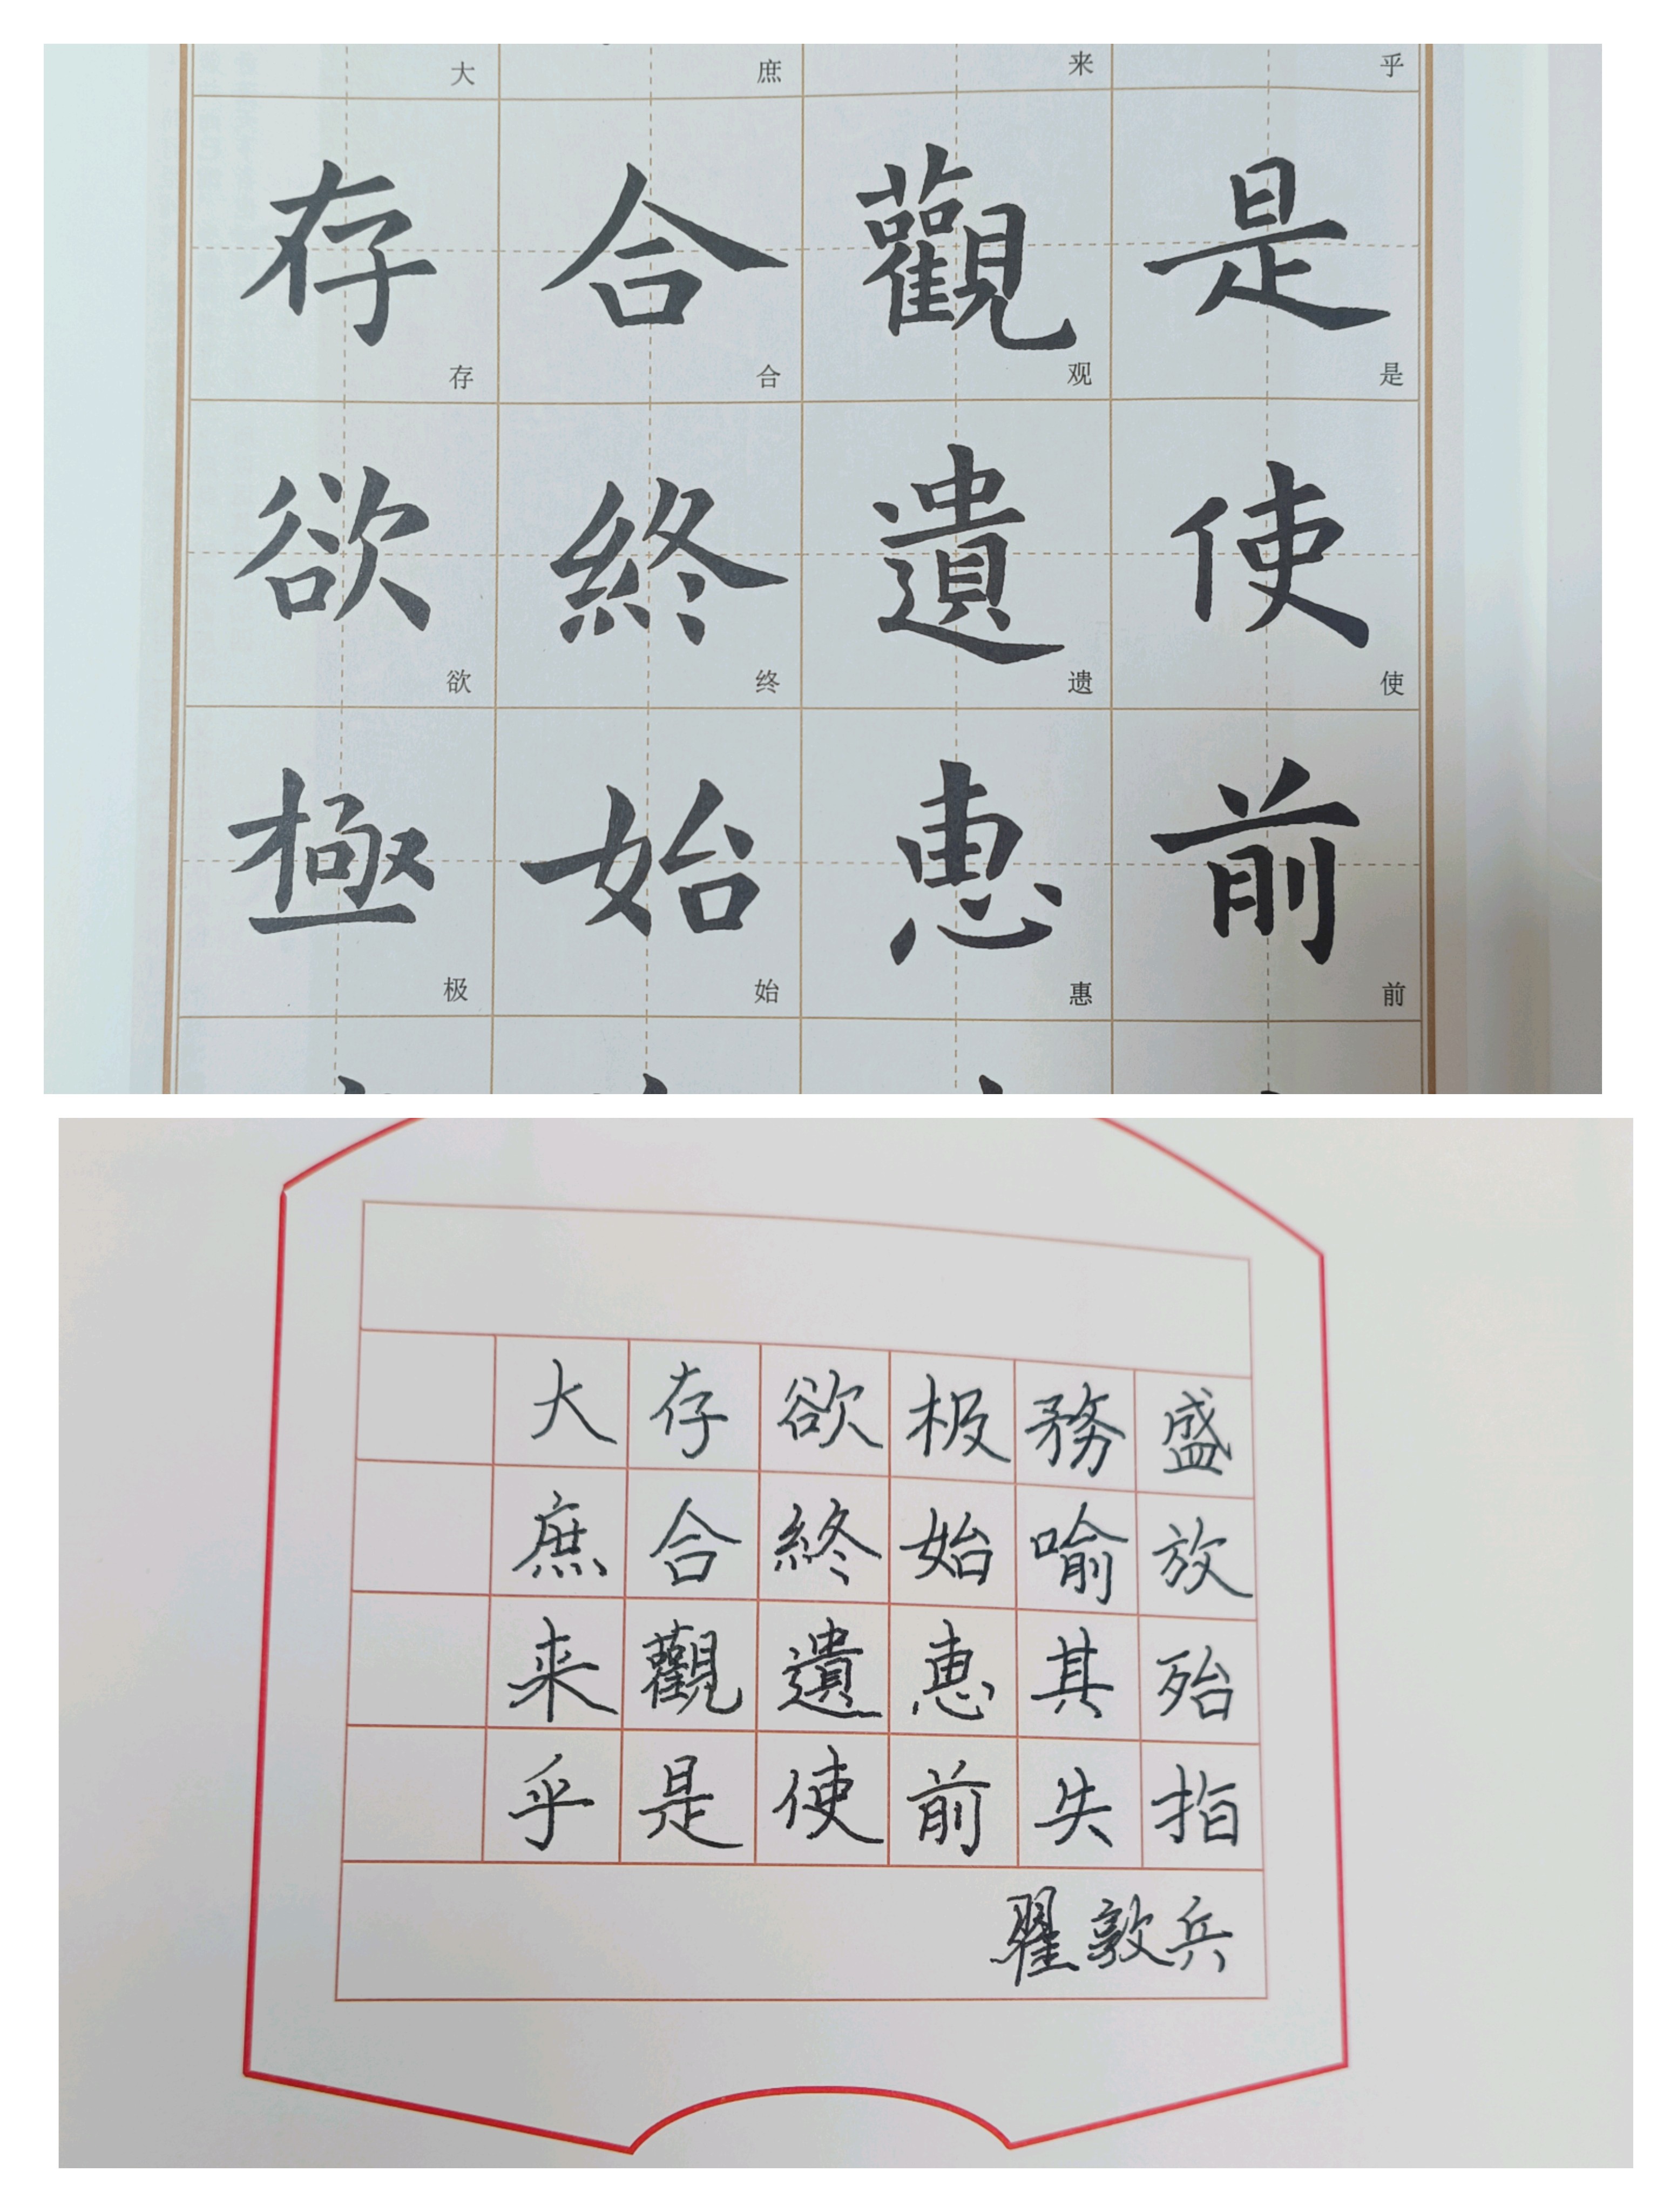 大 庶 来 乎
存 合 觀 是
存 合 观 是
欲 終 遺 使
欲 终 遗 使
極 始 恵 前
极 始 惠 前
大 存 欲 极 務 盛
庶 合 終 始 喻 放
来 觀 遺 恵 其 殆
乎 是 使 前 失 指
翟敦兵